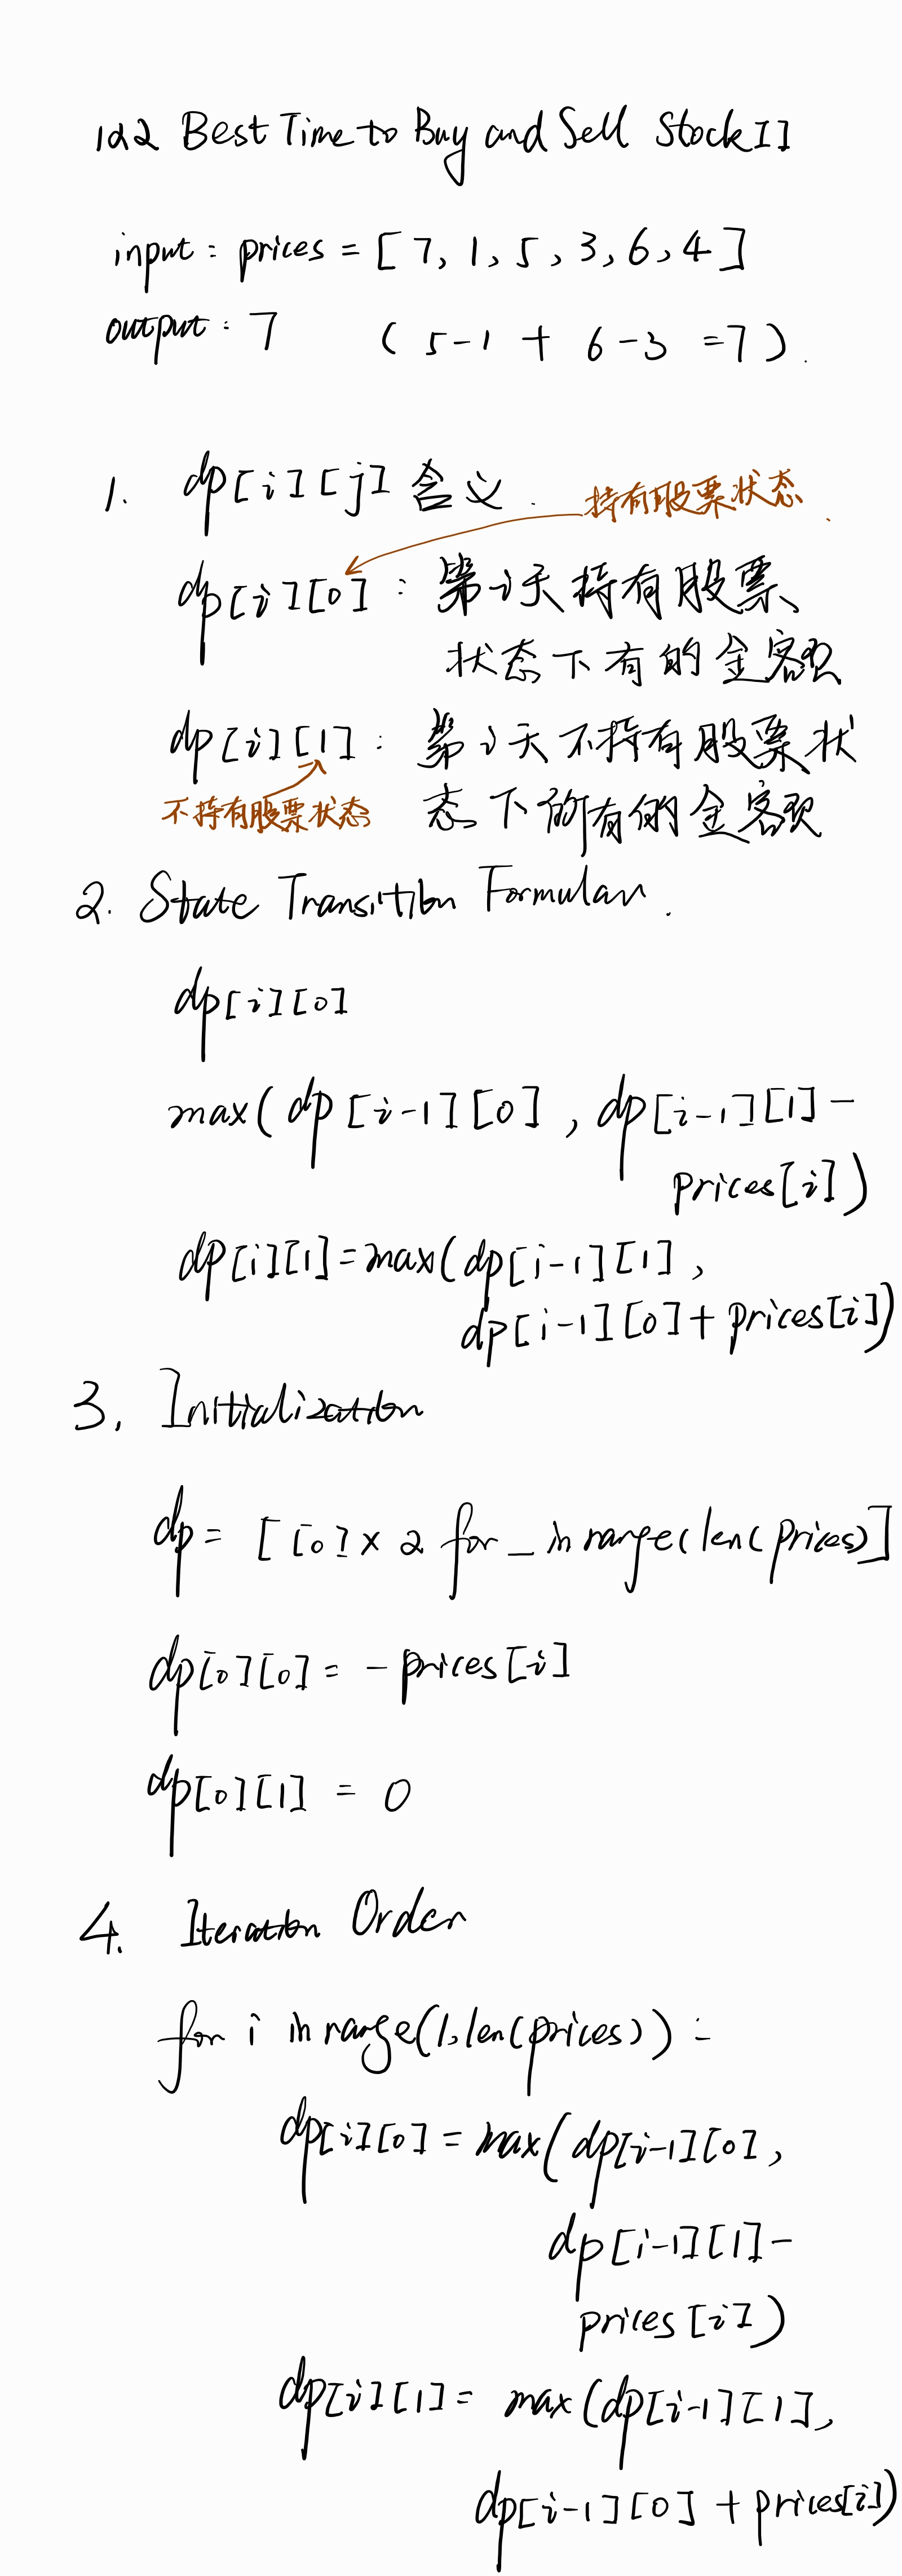 122 Best Time to Buy and Sell Stock II
input : prices = [ 7, 1, 5, 3, 6, 4 ]
output : 7 ( 5 - 1 + 6 - 3 = 7 ) .
1. dp[i][j] 含义 .
持有股票状态 .
dp[i][0] : 第i天持有股票
状态下有的金额
dp[i][1] : 第i天不持有股票状
不持有股票状态
态下所有的金额
2. State Transition Formular .
dp[i][0]
max( dp[i-1][0] , dp[i-1][1] -
prices[i])
dp[i][1] = max(dp[i-1][1] ,
dp[i-1][0] + prices[i])
3. Initialization
dp = [ [0] × 2 for _ in range(len(prices)]
dp[0][0] = - prices[i]
dp[0][1] = 0
4. Iteration Order
for i in range(1, len(prices)) :
dp[i][0] = max( dp[i-1][0] ,
dp[i-1][1] -
prices[i])
dp[i][1] = max(dp[i-1][1] ,
dp[i-1][0] + prices[i])